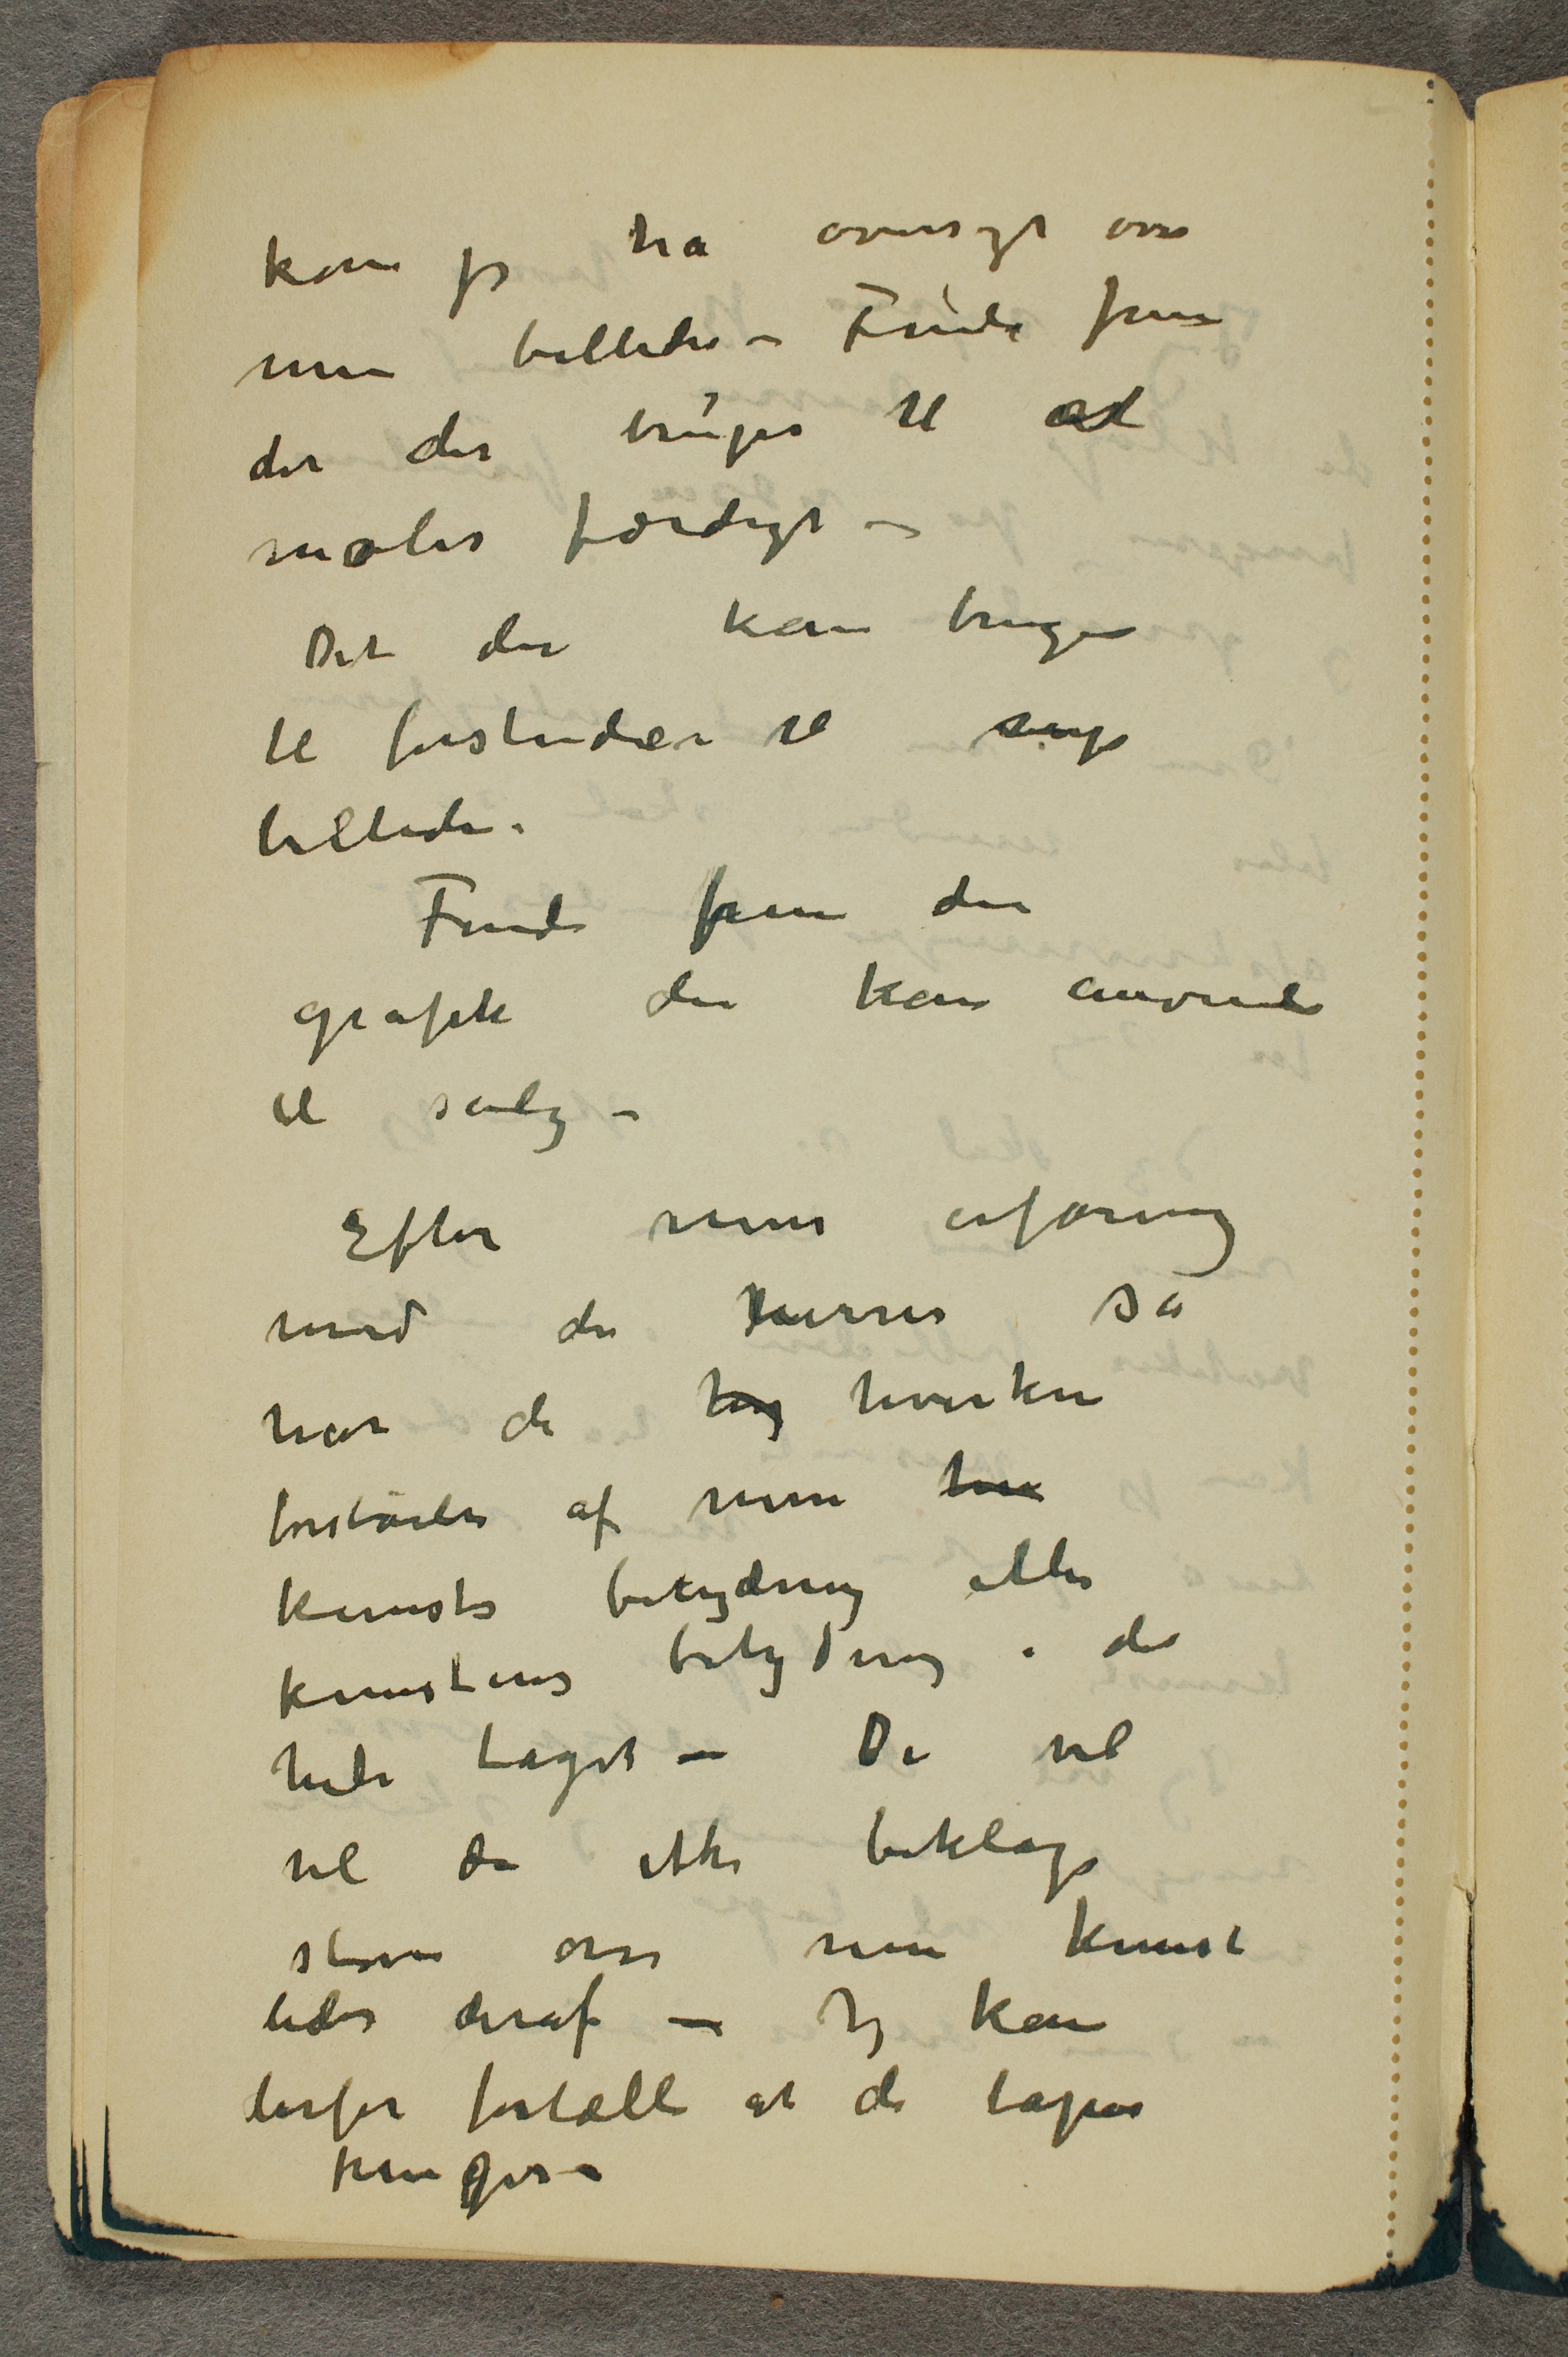 kan jeg ha oversigt over
mine billeder – Finde frem
det der bruges til at
males færdigt –
Det der kan bruges
til forstudier til nye
billeder.
Finde frem den
grafik der kan anvendes
til salg –
Efter min erfaring
med de herrer så
har de hverken
forståelse af min
kunsts betydning eller
kunstens betydning i det
hele taget – De vil
vil da ikke beklage
større om min kunst
lider deraf – Jeg kan
derfor fortælle at de tager
penger –